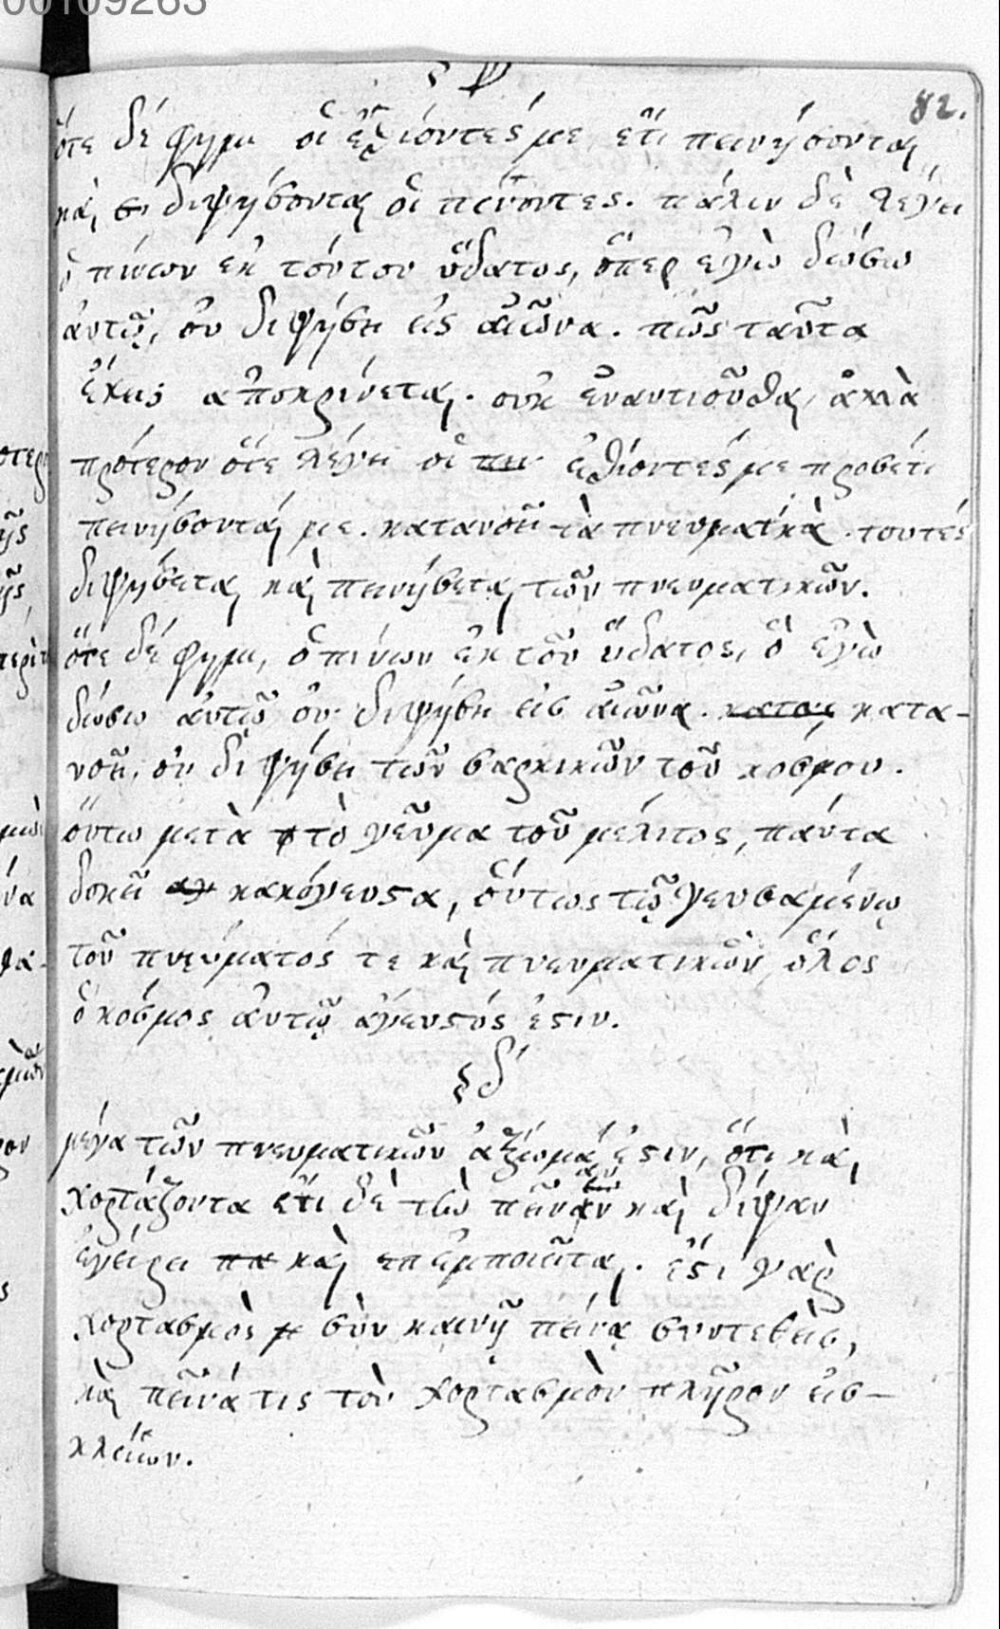 00109263
82.
ὅτε δέ φημι οἱ ἐσθίοντές με ἔτι πεινήσονται
καὶ διψήσονται οἱ πίνοντες. πάλιν δὲ λέγει
ὁ πίνων ἐκ τούτου ὕδατος, ὅπερ ἐγὼ δώσω
ἀυτῷ, ὀυ διψήσει εἰς αἰῶνα. πῶς ταῦτα
ἔχεις ἀποκρίνεται. ὀυκ ἐναντιοῦσθαι, ἀλλὰ
πρότερον ὅτε λέγει οἱ ἐσθίοντές με προσέτι
πεινήσονταί με. κατανοεῖ τὰ πνευματικὰ. τουτές
διψήσεται καὶ πεινήσεται τῶν πνευματικῶν.
ὅτε δέ φημι, ὁ πίνων ἐκ τοῦ ὕδατος, ὃ ἐγὼ
δώσω ἀυτῷ ὀυ διψήσει εἰς αἰῶνα. κατα-
νοεῖ, ὀυ διψήσει τῶν σαρκικῶν τοῦ κόσμου.
ὅυτω μετὰ τὸ γεῦμα τοῦ μέλιτος, πάντα
δοκεῖ κακόγευστα, ὅυτως τῷ γευσαμένῳ
τοῦ πνεύματός τε καὶ πνευματικῶν ὅλος
ὁ κόσμος ἀυτῷ ἄγευστός ἐστιν.
ξδ´
μέγα τῶν πνευματικῶν ἀξίωμά ἐστιν, ὅτι καὶ
χορτάζοντα ἔτι δὲ τὸ πεινᾶν καὶ διψᾶν
ἐγείρει καὶ ἐμποιεῖται. ἔστι γὰρ
χορτασμὸς σὺν καινῇ πείνᾳ συντεθεὶς,
καὶ πεῖνά τις τὸν χορτασμὸν πλήρον εἰσ-
κλείων.